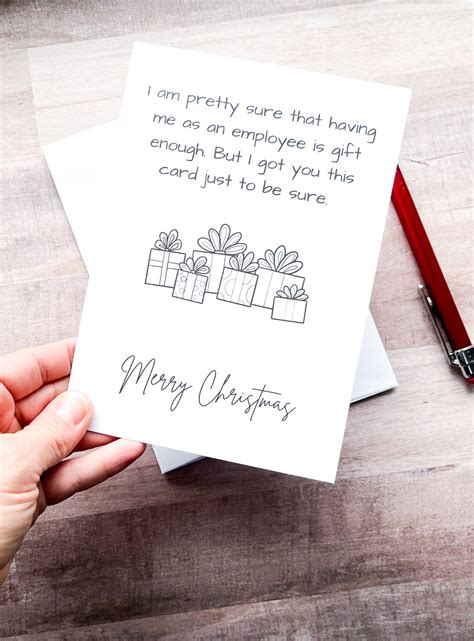 I am pretty sure that having
me as an employee is gift
enough. But I got you this
card just to be sure.
Merry Christmas